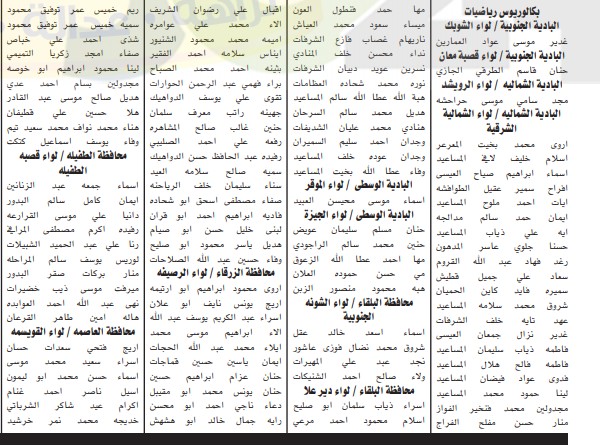 بكالوريوس رياضيات
البادية الجنوبية / لواء الشوبك
غدير موسى عواد العمارين
البادية الجنوبية / لواء قصبة معان
حنان قاسم الطرفي الجازي
البادية الشماليه / لواء الرويشد
مجد سامي موسى حراحشه
البادية الشماليه / لواء الشمالية
الشرقية
اروى محمد بخيت المعرعر
اسلام خليف لافي المساعيد
اسماء ابراهيم صياح العيسى
افراح سمير عقيل الطوافشه
ايات احمد ملوح المساعيد
ايمان حمد سالم مدالجه
ايه علي ذياب المساعيد
حسنا جلوي عاسر المدهون
رغد فهاد عبد الله القروم
سعاد علي جميل قطيش
سميره فايد كاين الحميان
شروق محمد سلامه المساعيد
عهد تايه خلف الشرفات
غدير نزال جمعان العيسى
فاطمه ذياب سليمان المساعيد
فاطمه فالح هلال المساعيد
فدوى عواد فيضان المساعيد
لينا حمود محمد المساعيد
مجدولين محمد فتخير الفواز
مجدولين محسن صالح الفراج
مها حمد فنطول العون
ميساء سعود محمد العياش
ناريهام غصاب فازع الشرفات
نداء محسن خلف المنادي
نسرين عويد دبيان الشرفات
نوره محمد شحاده العظامات
هبة الله عطا الله سالم المساعيد
هديل محمد سالم السرحان
هنادي محمد عليان الشديفات
وجدان احمد سليم السميران
وجدان عوده خلف المساعيد
وفاء عطا الله بخيت المساعيد
البادية الوسطى / لواء الموقر
اسماء موسى محيسن العبيد
البادية الوسطى / لواء الجيزة
حنان مسلم سليمان عويض
حنين محمد سالم الراجودي
مها احمد عطا الله الزعوق
مي حسن حموده العلان
هبه محمود منصور الزبن
محافظة البلقاء / لواء الشونه
الجنوبية
اسماء اسعد خالد عتقل
شروق محمد نضال فوزى عاشور
نجد عبد علي المهيرات
ولاء صالح احمد الشنيكات
محافظة البلقاء / لواء دير علا
اسراء ذياب سلمان ابو صليح
اسلام محمود احمد مرعي
اقبال علي رضوان الشريف
الاء محمد علي عوامره
اميمه محمد محمود الشنيور
ايناس سلامه احمد الفقير
بثينه احمد محمد الصباح
براء فهمي عبد الرحمن الحوارات
تقوى علي يوسف الدواهيك
جهينه راتب معرف سلمان
حنين غالب صالح المشاهره
رفعه علي احمد الصليبي
رفيده عبد الحافظ حسن الدواهيك
سميه صالح سلامه العيد
سناء سليمان خلف الرياحنه
صفاء مصطفى اسحق ابو شحاده
فاديه ابراهيم احمد ابو قران
لبنى خليل حسن ابو صيام
هديل ياسر محمود ابو صليح
وفاء حسين عبد الله الصلاحات
محافظة الزرقاء / لواء الرصيفه
اروى محمود ابراهيم ابو ارتيمه
اريج يونس نايف ابو علان
اسراء عبد الكريم يوسف عبد الله
الاء ابراهيم موسى محمد
ايلاء محمد عبد الله الحجات
ايمان ياسين حسين قماجات
حنان عزام ابراهيم حسين
حنان يونس محمد ابو مقيبل
دعاء ناجي احمد ابو محسن
رايه جمال خالد ابو هشهش
ريم خميس عمر توفيق محمود
سميه خميس عمر توفيق محمود
شذى احمد علي خياص
صفاء امجد زكريا التميمي
لينا محمود ابراهيم ابو خوصه
مجدولين بسام احمد عدي
هديل صالح موسى عبد القادر
هلا حسين علي قطيفان
هناء محمد نواف محمد سعيد تيم
وفاء يوسف اسماعيل كتكت
محافظة الطفيله / لواء قصبه
الطفيله
اسماء جمعه عبد الزنانين
ايمان كامل سالم البدور
دانيا علي موسى القرارعه
رفيده اكرم مصطفى المرافي
رنا علي عبد الحميد الشبيلات
لوريس يوسف سالم المراحله
منار بركات صقر البدور
ميرفت موسى ذيب خضيرات
نهى عبد الله احمد العوابده
هاله امين طاهر القرعان
محافظة العاصمه / لواء القويسمه
اريج فتحي سعدات حسان
اسراء سعيد محمد موسى
اسماء حسن محمد ابو ليمون
اسيل ناصر احمد غنام
اكرام عيد شاكر الشرباتي
خديجه محمد نمر خرشيد